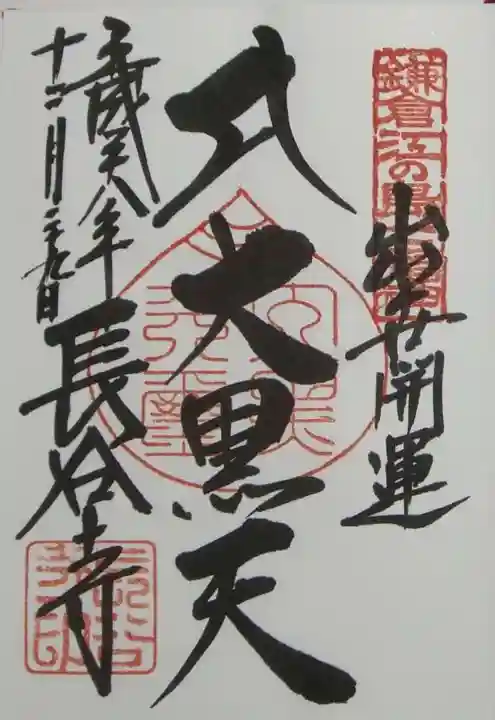 鎌倉江の島七福神
出世開運
大黒天
平成二十八年
十二月二十九日
長谷寺